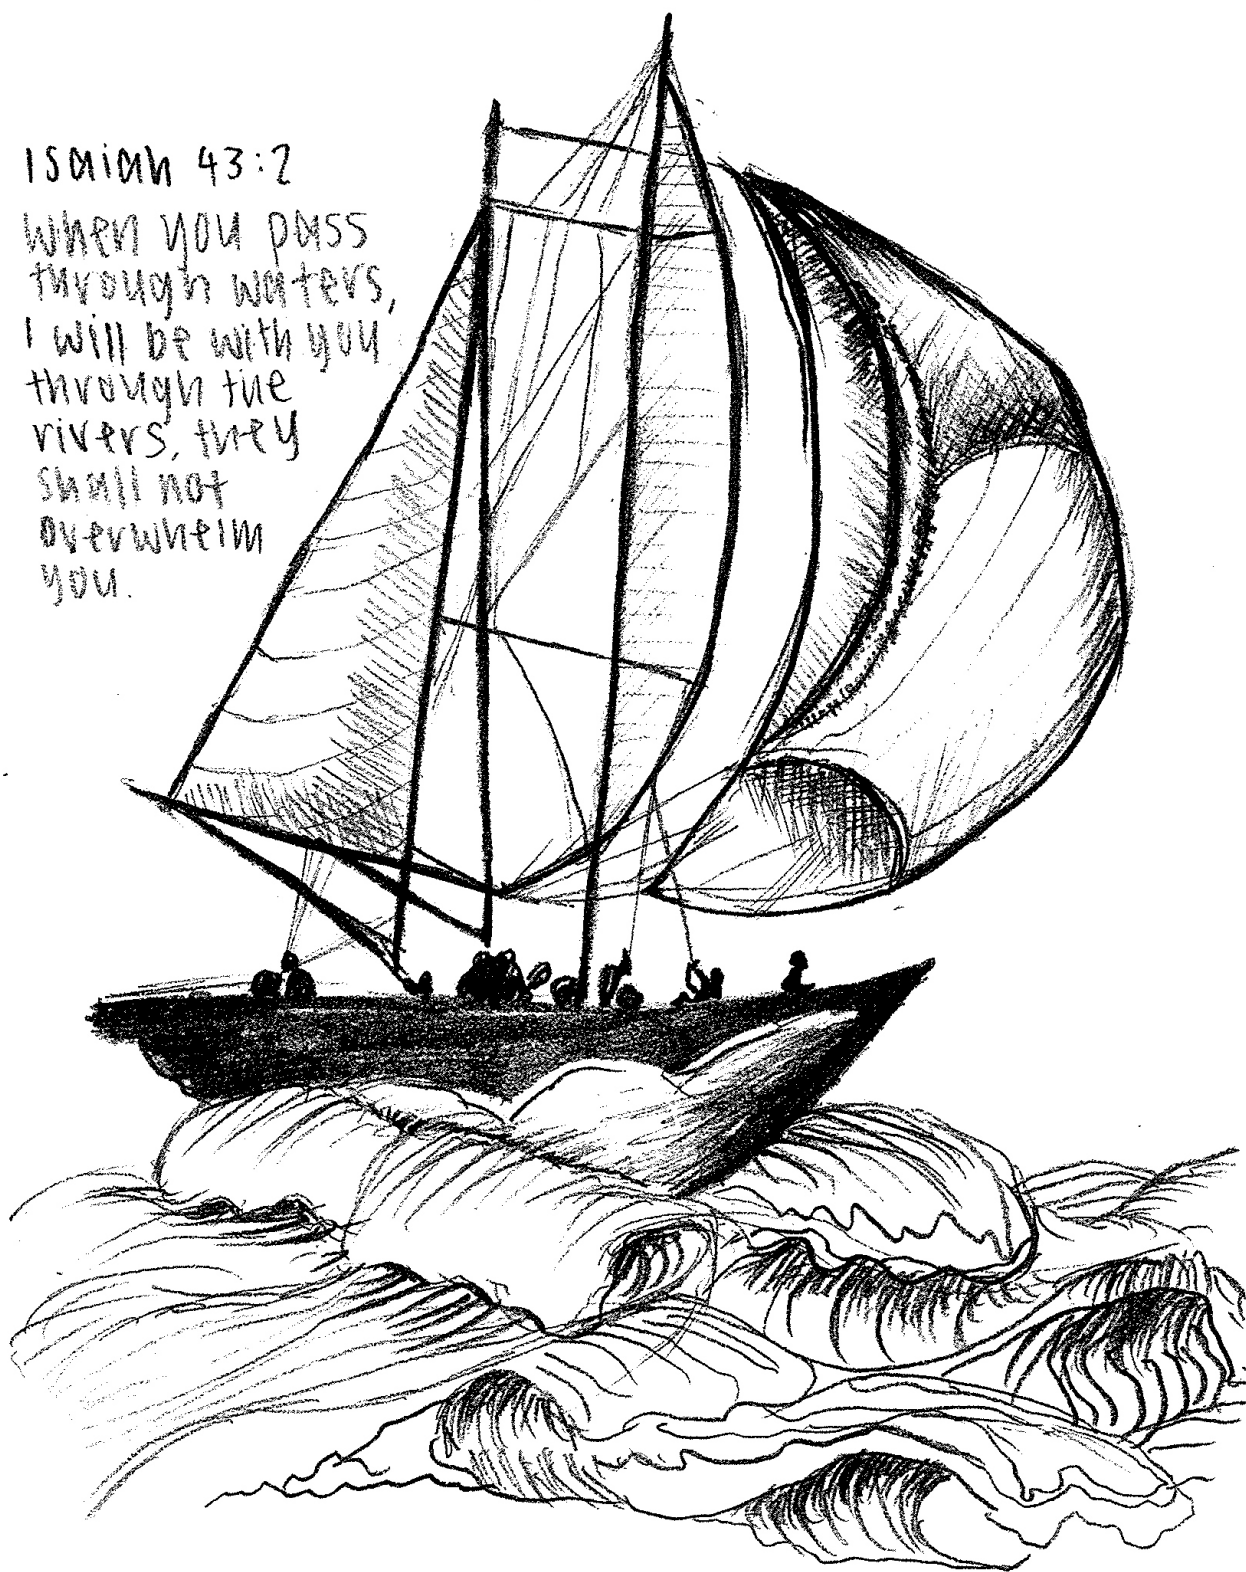 Isaiah 43:2
When you pass
through waters,
I will be with you
through the
rivers, they
shall not
overwhelm
you.